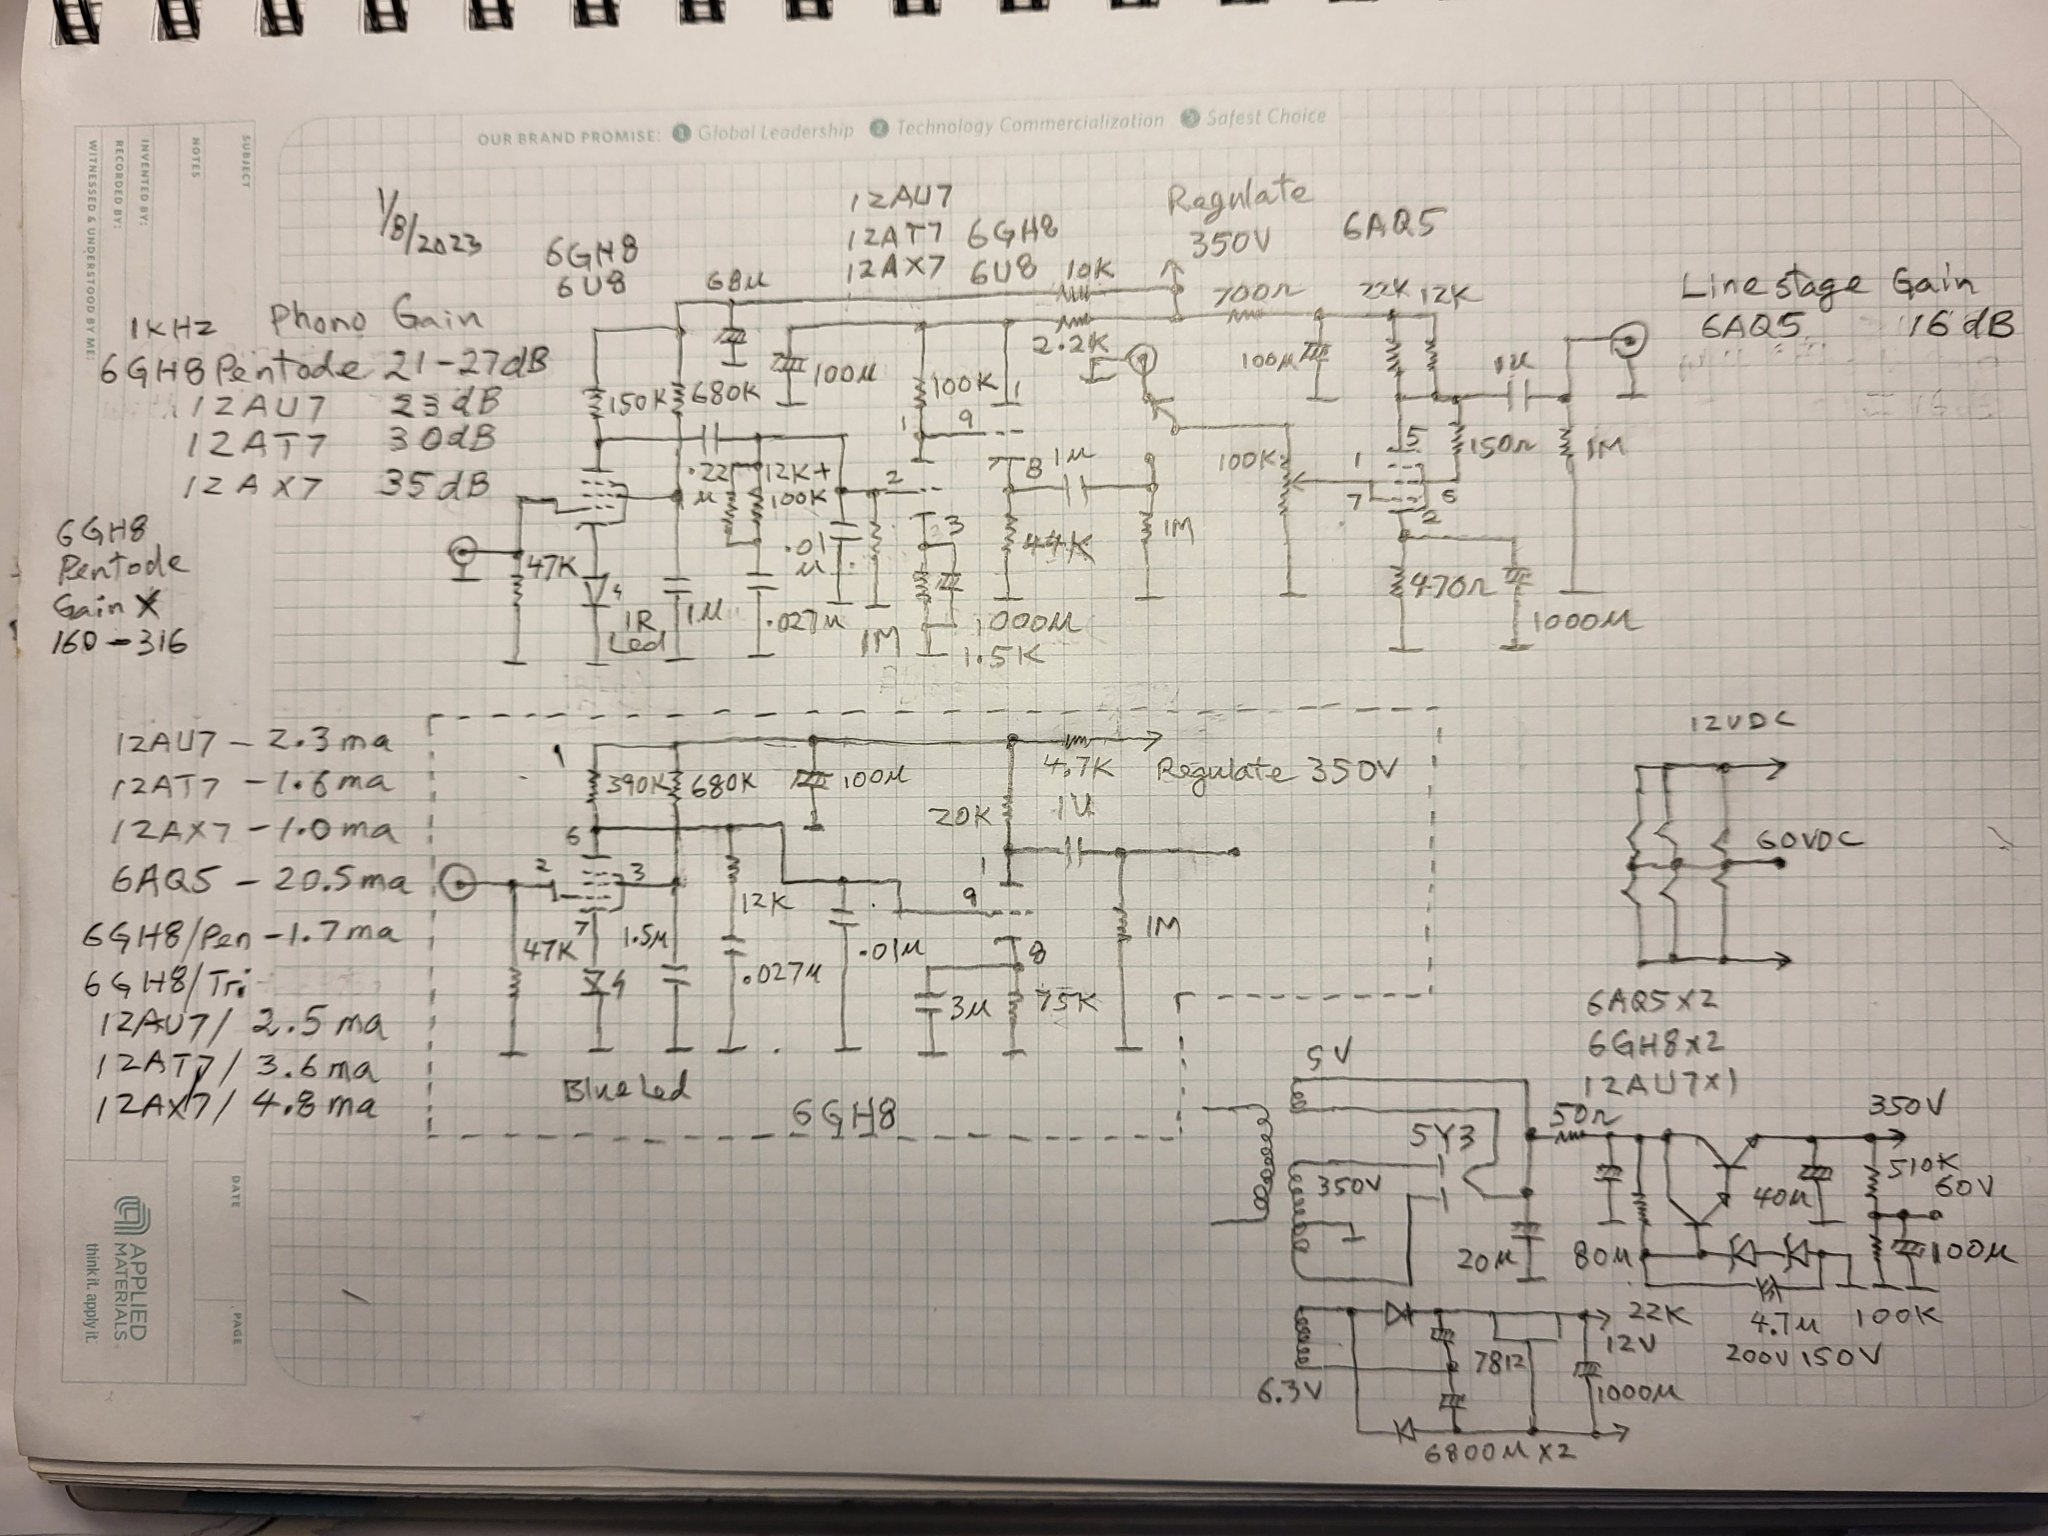 OUR BRAND PROMISE: 1 Global Leadership 2 Technology Commercialization 3 Safest Choice
SUBJECT
NOTES
INVENTED BY:
RECORDED BY:
WITNESSED & UNDERSTOOD BY ME:
1/8/2023
6GH8
6U8
68µ
12AU7
12AT7 6GH8
12AX7 6U8
10K
Regulate
350V
6AQ5
700Ω
22K 12K
Line stage Gain
6AQ5 16dB
1KHz Phono Gain
6GH8 Pentode 21-27dB
12AU7 23dB
12AT7 30dB
12AX7 35dB
6GH8
Pentode
Gain X
160-316
150K
680K
100µ
100K
2.2K
100µ
1µ
.22
µ
12K+
100K
1
9
2
3
8
1µ
100K
1
7
5
6
2
150Ω
1M
47K
IR
Led
1µ
.01
µ
.027µ
1M
44K
1M
1000µ
1.5K
470Ω
1000µ
12AU7 - 2.3ma
12AT7 - 1.6ma
12AX7 - 1.0ma
6AQ5 - 20.5ma
6GH8/Pen - 1.7ma
6GH8/Tri
12AU7/ 2.5ma
12AT7/ 3.6ma
12AX7/ 4.8ma
390K
680K
100µ
4.7K
Regulate 350V
20K
1U
6
2
3
7
12K
1
9
8
47K
1.5µ
.027µ
.01µ
3µ
75K
1M
Blue Led
6GH8
12VDC
60VDC
6AQ5X2
6GH8X2
12AU7X1
5V
5Y3
350V
50Ω
350V
510K
60V
40µ
20µ
80µ
100µ
22K
4.7µ
100K
200V 150V
6.3V
7812
12V
1000µ
6800µX2
DATE
PAGE
APPLIED
MATERIALS
think it. apply it.